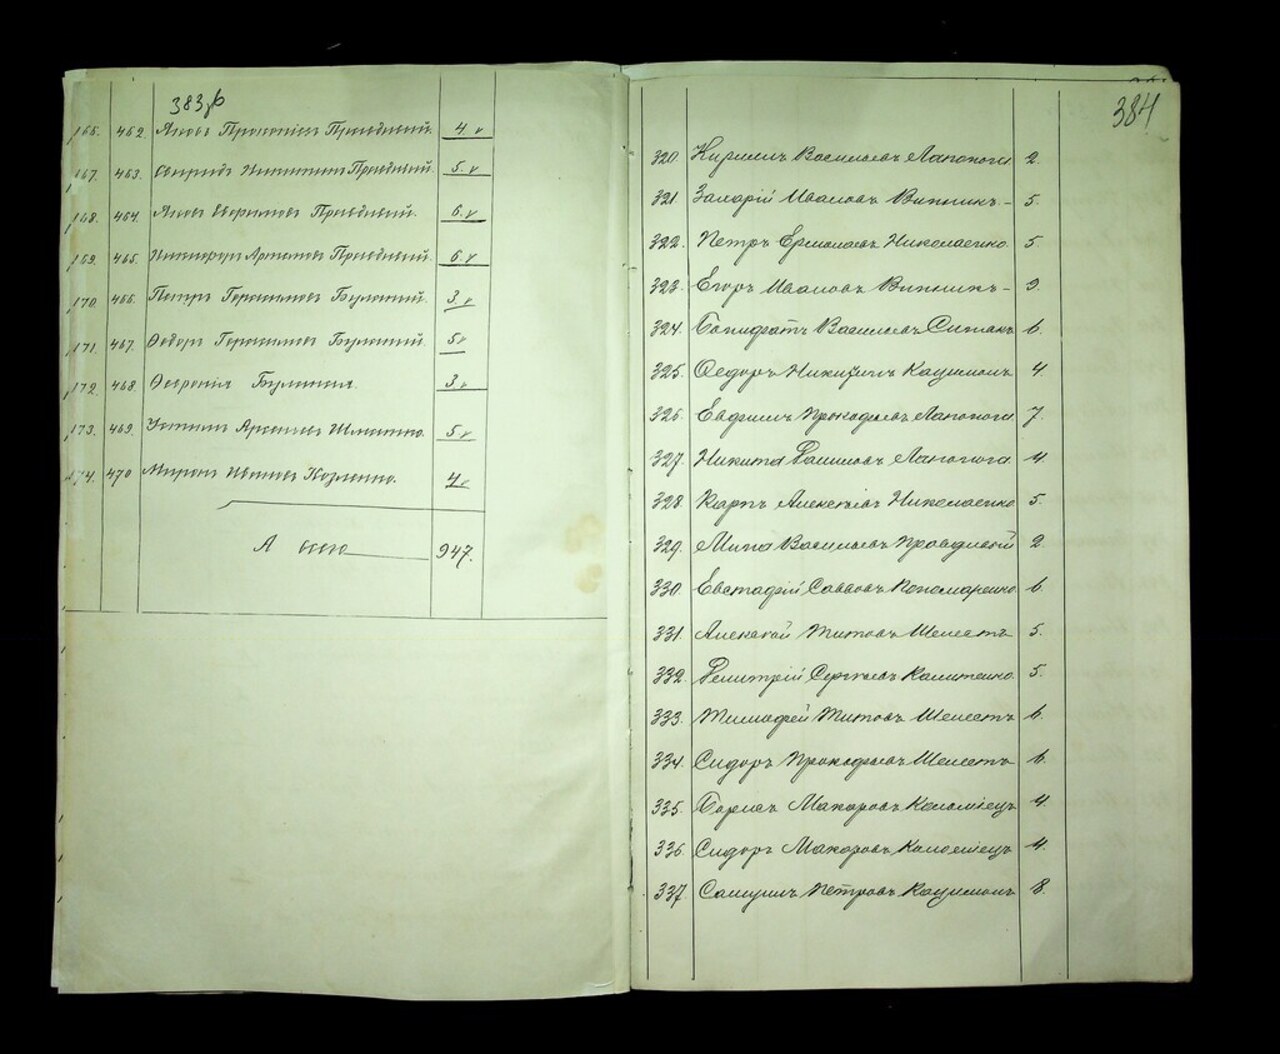 383 об
166. 462. Яковъ Прокопіевъ Праведный. 4.
167. 463. Свиридъ Никитинъ Праведный. 5.
168. 464. Яковъ Ефримовъ Праведный. 6.
169. 465. Никифоръ Артемовъ Праведный. 6.
170. 466. Петръ Герасимовъ 3.
171. 467. Ѳедоръ Герасимовъ 5
172. 468. Ѳевронія 3.
173. 469. Устинъ Арсеньевъ 5
174. 470 Миронъ Ивановъ Козленко. 4
А всего 947.
384
320. Кирилъ Васильевъ Лапоногъ 2.
321. Захарій Ивановъ Винникъ - 5.
322. Петръ Ермолаевъ Николаенко. 5.
323. Егоръ Ивановъ Винникъ - 9.
324. Васильевъ 6.
325. Ѳедоръ Никитинъ 4.
326. Евфимъ Прокофьевъ Лапоногъ. 7.
327. Никита Данилов Лапоногъ. 4.
328. Карпъ Алексѣевъ Николаенко 5.
329. Мина Васильевъ Праведный 2.
330. Евстафій Саввовъ Пономаренко 6.
331. Алексѣй Титовъ Шелестъ 5.
332. Дмитрій Сергѣевъ Калитенко. 5.
333. Тимофей Титовъ Шелестъ 6.
334. Сидоръ Прокофьевъ Шелестъ 6.
335. Борисъ Макаровъ Коломіецъ 4.
336. Сидоръ Макаровъ Коломіецъ 4.
337. Самуилъ Петровъ 8.